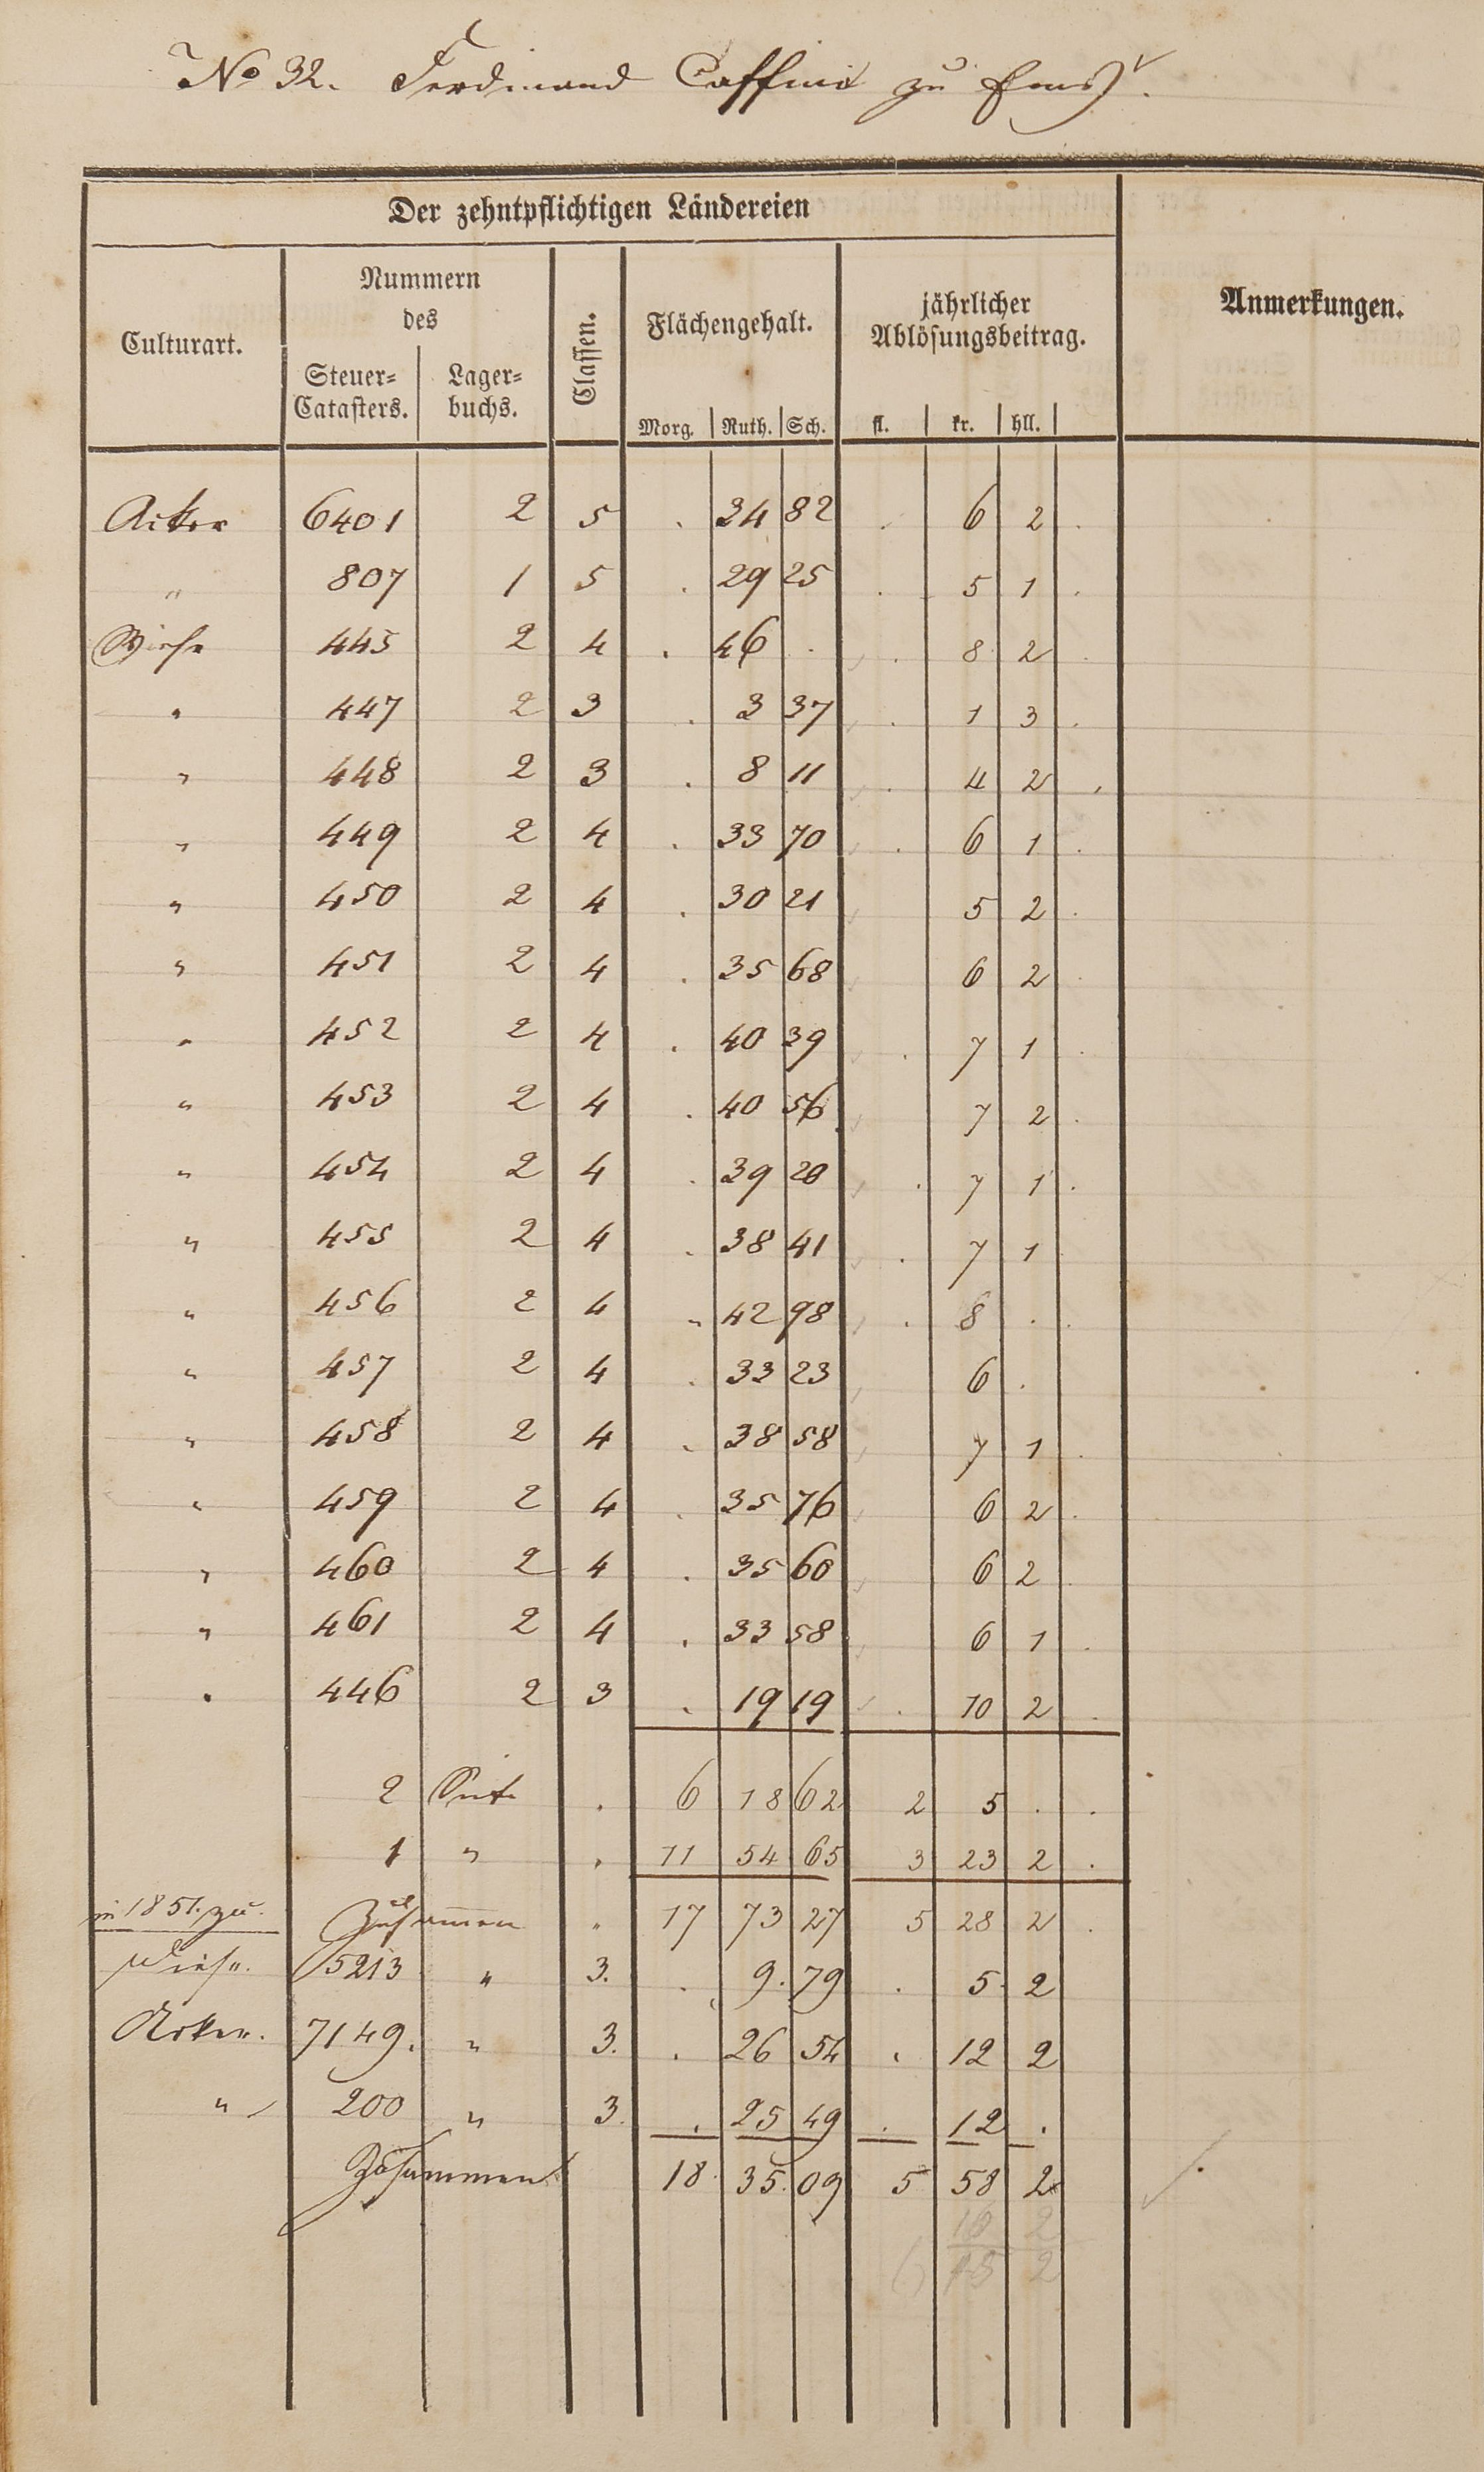 No 32. Ferdinand Caffini zu Ems.
Der zehntpflichtigen Ländereien
Culturart.
Nummern
des
Steuer=
Catasters.
Lager=
buchs.
Classen.
Flächengehalt.
Morg. Ruth. Sch.
jährlicher
Ablösungsbeitrag.
fl. kr. hll.
Anmerkungen.
Acker 6401 2 5 . 34 82 . 6 2 .
" 807 1 5 . 29 25 . 5 1 .
Wiese 445 2 4 . 46 . . 8 2 .
" 447 2 3 . 3 37 . 1 3 .
" 448 2 3 . 8 11 . 4 2 .
" 449 2 4 . 33 70 . 6 1 .
" 450 2 4 . 30 21 5 2 .
" 451 2 4 . 35 68 6 2 .
" 452 2 4 . 40 39 . 7 1 .
" 453 2 4 . 40 56 7 2 .
" 454 2 4 . 39 20 . 7 1 .
" 455 2 4 . 38 41 . 7 1
" 456 2 4 . 42 98 . 8 . .
" 457 2 4 . 33 23 6 .
" 458 2 4 . 38 58 7 1 .
" 459 2 4 . 35 76 6 2 .
" 460 2 4 . 35 60 6 2 .
" 461 2 4 . 33 58 6 1 .
" 446 2 3 . 19 19 . 10 2 .
2 Seite . 6 18 62 2 5 . .
1 " . 11 54 65 3 23 2 .
in 1851. zu.
Zusammen " 17 73 27 5 28 2 .
Wiese. 5213 " 3. . 9. 79 . 5. 2
Acker. 7149. " 3. . 26 54 . 12 2
" 200 " 3. . 25 49 . 12 .
Zusammen 18. 35. 09 5 58 2
10 2
6 2